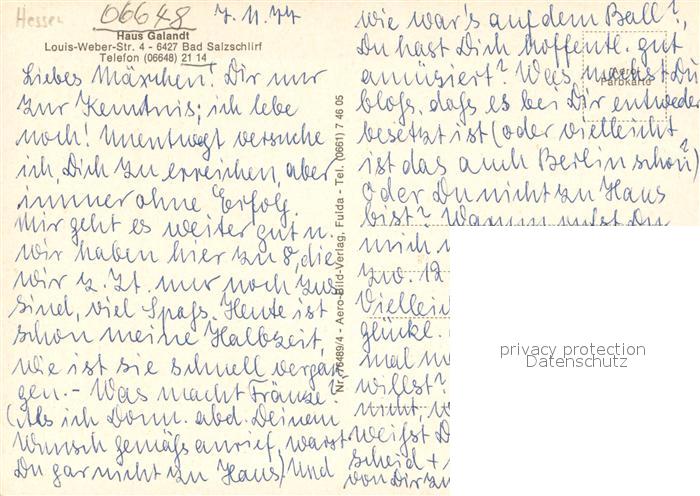 Hessen
06648
7.11.77
Haus Galandt
Louis-Weber-Str. 4 - 6427 Bad Salzschlirf
Telefon (06648) 21 14
Liebes Märchen! Dir nur
zur Kenntnis; ich lebe
noch! Unentwegt versuche
ich, Dich zu erreichen, aber
immer ohne Erfolg.
Mir geht es weiter gut u.
wir haben hier zu 8, die
wir z. Zt. nur noch zus.
sind, viel Spaß. Heute ist
schon meine Halbzeit,
wie ist sie schnell vergan-
gen. - Was macht Fränze?
(Als ich Donn. abd. Deinem
Wunsch gemäß anrief, warst
Du gar nicht zu Haus) Und
Nr. 76489/4 - Aero-Bild-Verlag, Fulda - Tel. (0661) 7 46 05
wie war's auf dem Ball?,
Du hast Dich hoffentl. gut
amüsiert? Was machst Du
Farbkarte
bloß, daß es bei Dir entweder
besetzt ist (oder vielleicht
ist das auch Berlin schon?)
Oder Du nicht zu Haus
bist? Warum rufst Du
mich
zw. 12
Vielleich
glückl.
mal
willst?
nicht,
weißt D
scheid +
von Dir zu
privacy protection
Datenschutz